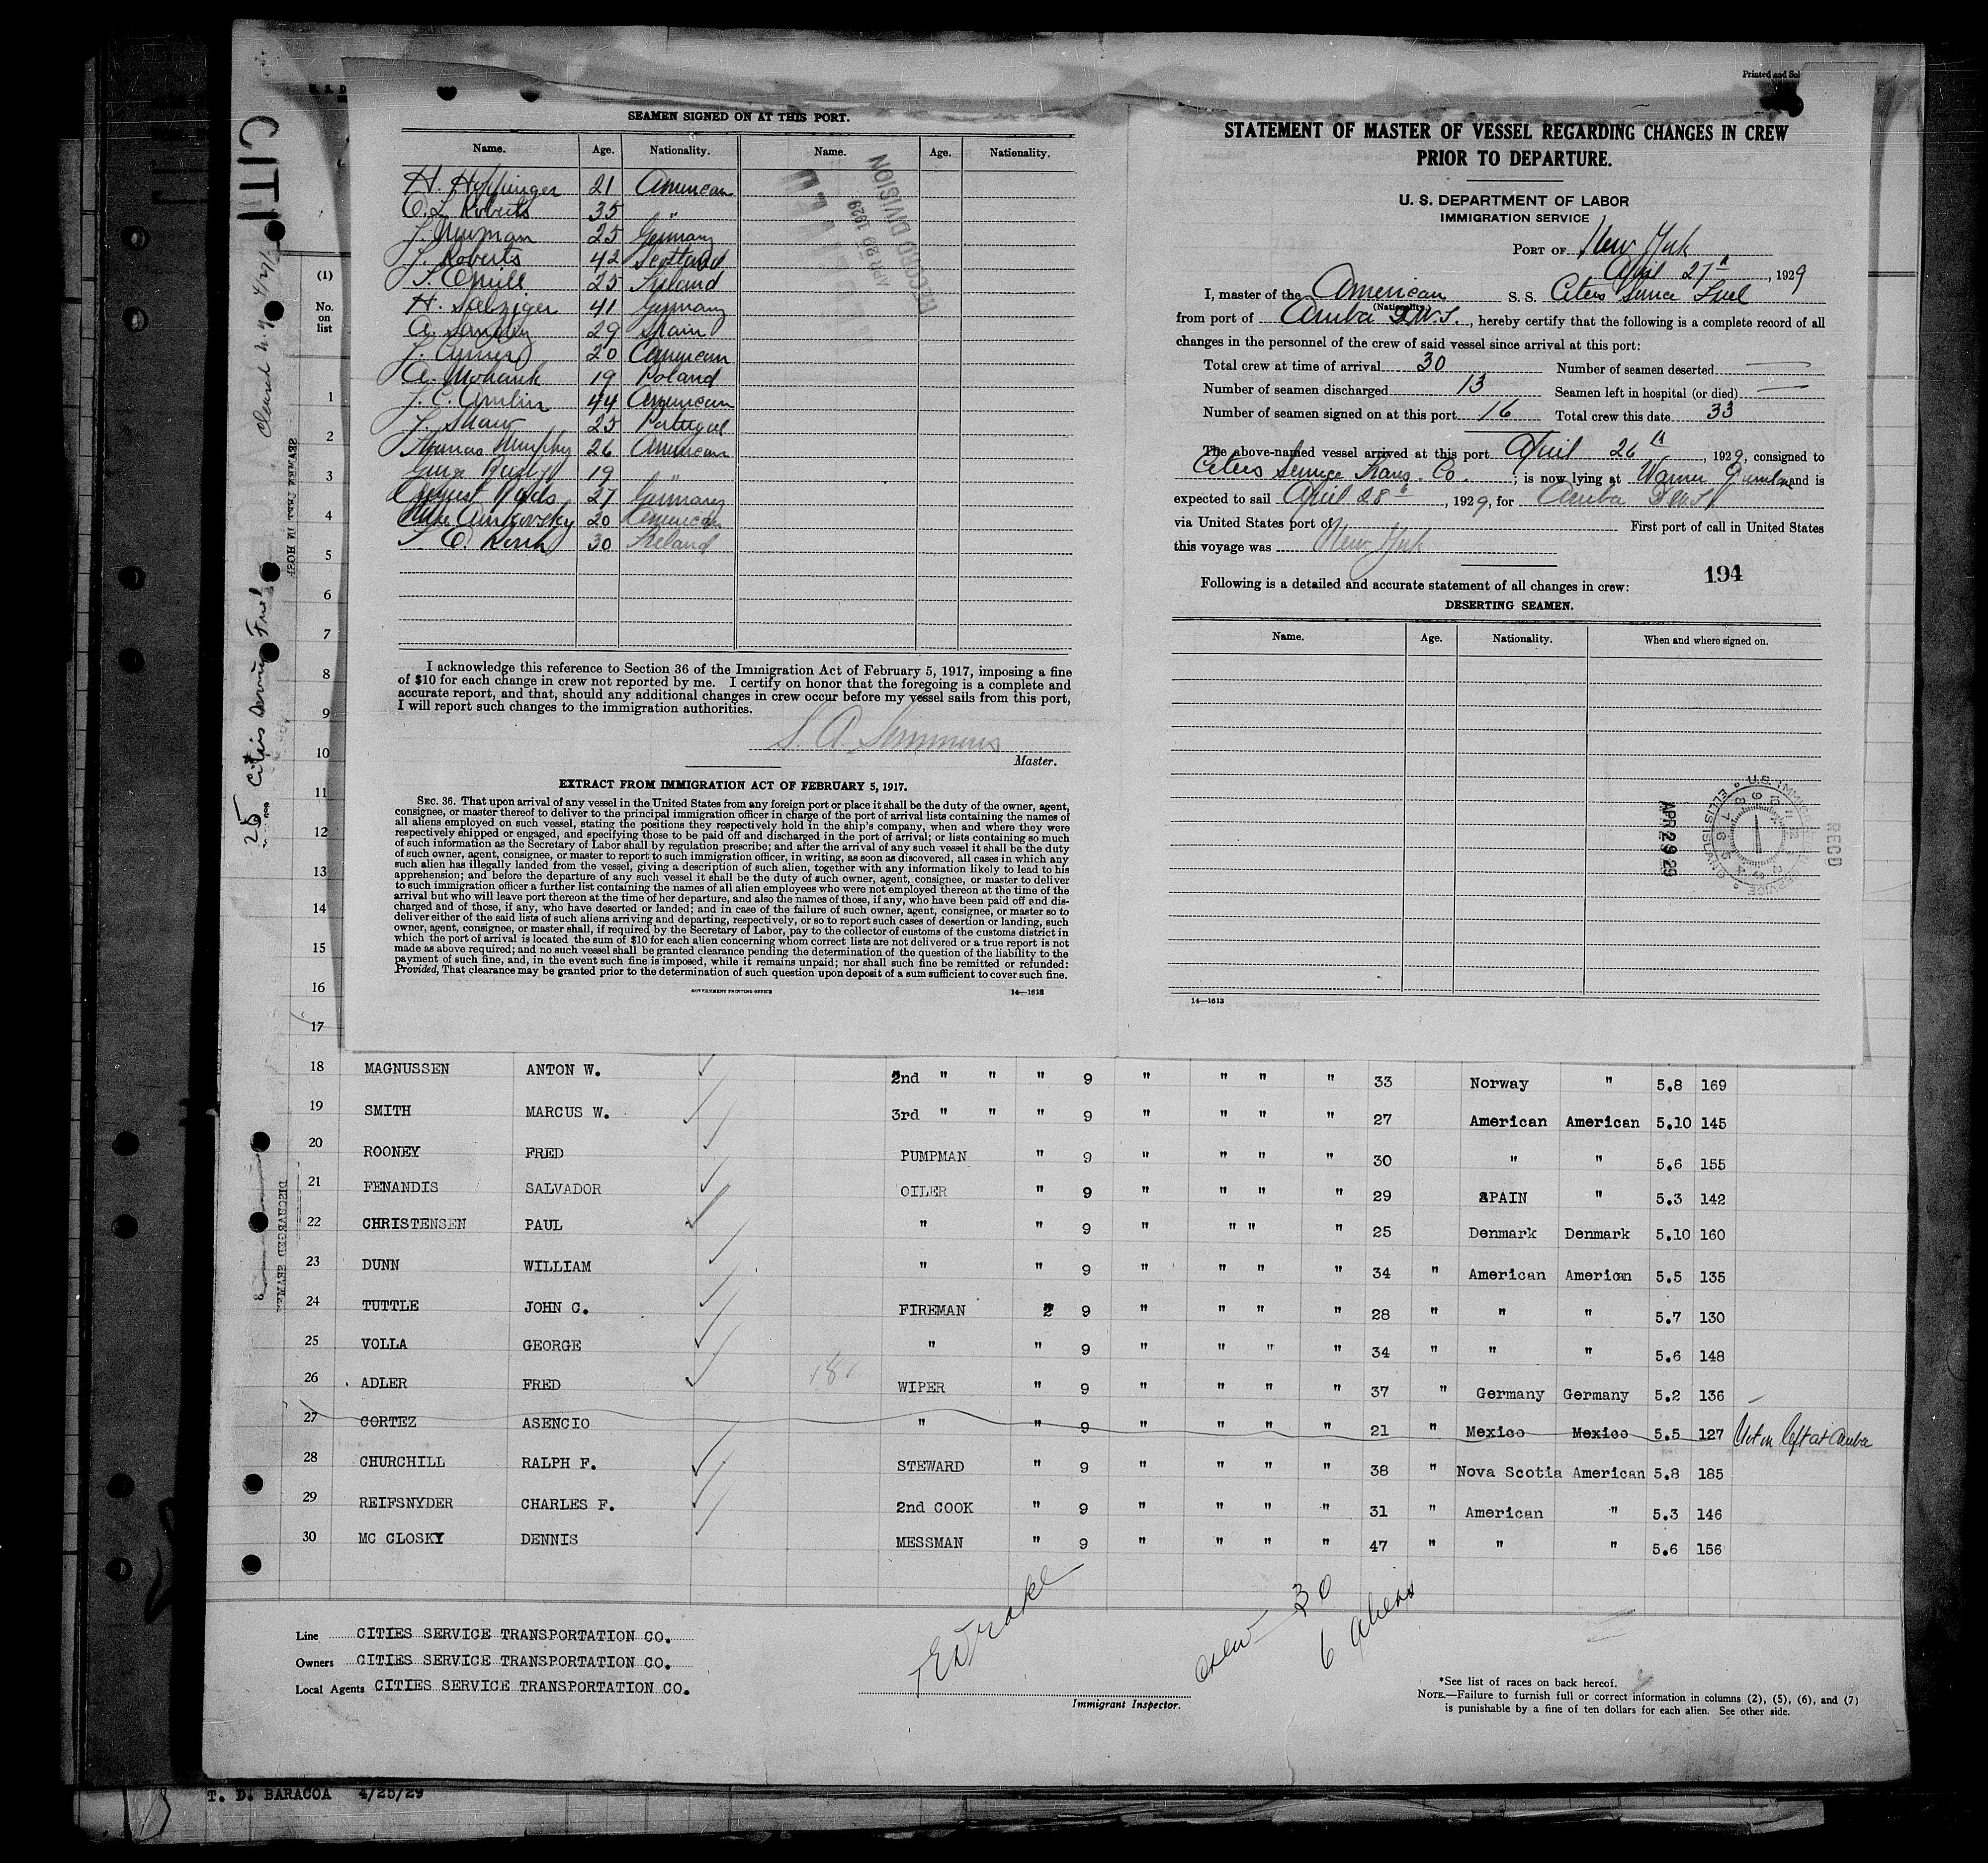 CITI
Cleared
25 Cities Service Fuel
SEAMEN SIGNED ON AT THIS PORT.
Name. Age. Nationality. Name. Age. Nationality.
H. Hoffinger 21 American
C. L. Roberts 35 "
J. Newman 25 Germany
J. Roberts 42 Scotland
25 Ireland
H. Salziger 41 Germany
A. 29 Spain
J. 20 American
A. Mohauk 19 Poland
J. C. 44 American
J. Shaw 25 Portugal
Thomas Murphy 26 American
George 19 "
August 27 Germany
20 American
30 Ireland
RECORD DIVISION
1929
I acknowledge this reference to Section 36 of the Immigration Act of February 5, 1917, imposing a fine
of $10 for each change in crew not reported by me. I certify on honor that the foregoing is a complete and
accurate report, and that, should any additional changes in crew occur before my vessel sails from this port,
I will report such changes to the immigration authorities.
S. A. Semmens
Master.
EXTRACT FROM IMMIGRATION ACT OF FEBRUARY 5, 1917.
SEC. 36. That upon arrival of any vessel in the United States from any foreign port or place it shall be the duty of the owner, agent,
consignee, or master thereof to deliver to the principal immigration officer in charge of the port of arrival lists containing the names of
all aliens employed on such vessel, stating the positions they respectively hold in the ship's company, when and where they were
respectively shipped or engaged, and specifying those to be paid off and discharged in the port of arrival; or lists containing so much
of such information as the Secretary of Labor shall by regulation prescribe; and after the arrival of any such vessel it shall be the duty
of such owner, agent, consignee, or master to report to such immigration officer, in writing, as soon as discovered, all cases in which any
such alien has illegally landed from the vessel, giving a description of such alien, together with any information likely to lead to his
apprehension; and before the departure of any such vessel it shall be the duty of such owner, agent, consignee, or master to deliver
to such immigration officer a further list containing the names of all alien employees who were not employed thereon at the time of the
arrival but who will leave port thereon at the time of her departure, and also the names of those, if any, who have been paid off and dis-
charged and of those, if any, who have deserted or landed; and in case of the failure of such owner, agent, consignee, or master so to
deliver either of the said lists of such aliens arriving and departing, respectively, or so to report such cases of desertion or landing, such
owner, agent, consignee, or master shall, if required by the Secretary of Labor, pay to the collector of customs of the customs district in
which the port of arrival is located the sum of $10 for each alien concerning whom correct lists are not delivered or a true report is not
made as above required; and no such vessel shall be granted clearance pending the determination of the question of the liability to the
payment of such fine, and, in the event such fine is imposed, while it remains unpaid; nor shall such fine be remitted or refunded:
Provided, That clearance may be granted prior to the determination of such question upon deposit of a sum sufficient to cover such fine.
GOVERNMENT PRINTING OFFICE 14—1613
Printed and Sol
STATEMENT OF MASTER OF VESSEL REGARDING CHANGES IN CREW
PRIOR TO DEPARTURE.
U. S. DEPARTMENT OF LABOR
IMMIGRATION SERVICE
PORT OF New York
April 27th, 1929
I, master of the American S. S. Cities Service Fuel
(Nationality)
from port of Aruba D.W.I., hereby certify that the following is a complete record of all
changes in the personnel of the crew of said vessel since arrival at this port:
Total crew at time of arrival 30 Number of seamen deserted —
Number of seamen discharged 13 Seamen left in hospital (or died) —
Number of seamen signed on at this port 16 Total crew this date 33
The above-named vessel arrived at this port April 26th, 1929, consigned to
Cities Service Trans. Co.; is now lying at Warner and is
expected to sail April 28th, 1929, for Aruba D.W.I.
via United States port of First port of call in United States
this voyage was New York
194
Following is a detailed and accurate statement of all changes in crew:
DESERTING SEAMEN.
Name. Age. Nationality. When and where signed on.
RECD
APR 29 29
14—1613
(1)
No.
on
list
1
2
3
4
5
6
7
8
9
10
11
12
13
14
15
16
17
18 MAGNUSSEN ANTON W. 2nd " " " 9 " " " " 33 Norway " 5.8 169
19 SMITH MARCUS W. 3rd " " " 9 " " " " 27 American American 5.10 145
20 ROONEY FRED PUMPMAN " 9 " " " " 30 " " 5.6 155
21 FENANDIS SALVADOR OILER " 9 " " " " 29 SPAIN " 5.3 142
22 CHRISTENSEN PAUL " " 9 " " " " 25 Denmark Denmark 5.10 160
23 DUNN WILLIAM " " 9 " " " " 34 " American American 5.5 135
24 TUTTLE JOHN C. FIREMAN " 9 " " " " 28 " " " 5.7 130
25 VOLLA GEORGE " " 9 " " " " 34 " " " 5.6 148
26 ADLER FRED WIPER " 9 " " " " 37 " Germany Germany 5.2 136
27 CORTEZ ASENCIO " " 9 " " " " 21 " Mexico Mexico 5.5 127 Not on left at Aruba
28 CHURCHILL RALPH F. STEWARD " 9 " " " " 38 " Nova Scotia American 5.8 185
29 REIFSNYDER CHARLES F. 2nd COOK " 9 " " " " 31 " American " 5.3 146
30 MC CLOSKY DENNIS MESSMAN " 9 " " " " 47 " " " 5.6 156
DISCHARGED SEAMEN
Line CITIES SERVICE TRANSPORTATION CO.
Owners CITIES SERVICE TRANSPORTATION CO.
Local Agents CITIES SERVICE TRANSPORTATION CO.
Immigrant Inspector.
crew 30
6 aliens
*See list of races on back hereof.
NOTE.—Failure to furnish full or correct information in columns (2), (5), (6), and (7)
is punishable by a fine of ten dollars for each alien. See other side.
T. D. BARACOA 4/25/29